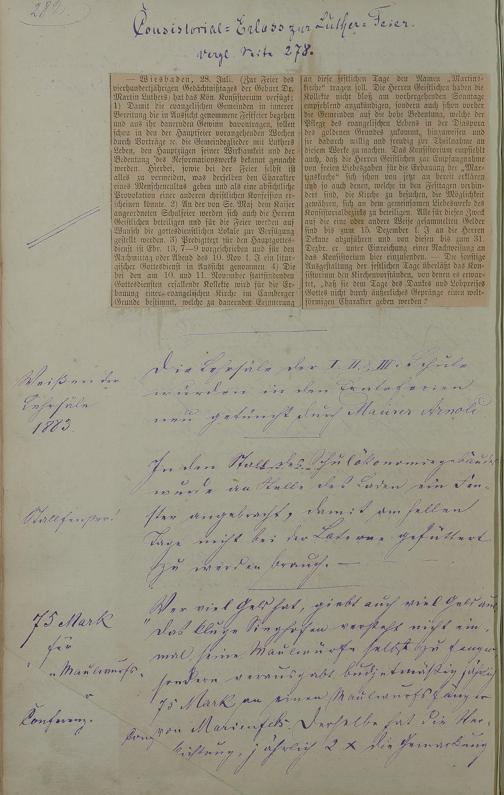 282.
Consistorial-Erlass zur Luther-Feier.
vergl. Seite 278.
— Wiesbaden, 28. Juli. (Zur Feier des
vierhundertjährigen Gedächtnißtages der Geburt Dr.
Martin Luthers) hat das Kön. Konsistorium verfügt:
1) Damit die evangelischen Gemeinden in innerer
Bereitung die in Aussicht genommene Festfeier begehen
und aus ihr dauernden Gewinn davontragen, sollen
schon in den der Hauptfeier vorangehenden Wochen
durch Vorträge rc. die Gemeindeglieder mit Luthers
Leben, den Hauptzügen seiner Wirksamkeit und der
Bedeutung des Reformationswerks bekannt gemacht
werden. Hierbei, sowie bei der Feier selbst ist
alles zu vermeiden, was derselben den Charakter
eines Menschencultus geben und als eine absichtliche
Provokation einer anderen christlichen Konfession er-
scheinen könnte. 2) An der von Se. Maj. dem Kaiser
angeordneten Schulfeier werden sich auch die Herren
Geistlichen betheiligen und für die Feier werden auf
Wunsch die gottesdienstlichen Lokale zur Verfügung
gestellt werden. 3) Predigttext für den Hauptgottes-
dienst ist Ebr. 13, 7—9 vorgeschrieben und für den
Nachmittag oder Abend des 10. Nov. l. J. ein litur-
gischer Gottesdienst in Aussicht genommen. 4) Die
bei den am 10. und 11. November stattfindenden
Gottesdiensten erfallende Kollekte wird für die Er-
bauung einer evangelischen Kirche im Camberger
Grunde bestimmt, welche zu dauernden Erinnerung
an diese festlichen Tage den Namen „Martins-
kirche“ tragen soll. Die Herren Geistlichen haben die
Kollekte nicht bloß am vorhergehenden Sonntage
empfehlend anzukündigen, sondern auch schon vorher
die Gemeinden auf die hohe Bedeutung, welche der
Pflege des evangelischen Lebens in der Diaspora
des goldenen Grundes zukommt, hinzuweisen und
sie dadurch willig und freudig zur Theilnahme an
diesem Werke zu machen. Das Konsistorium empfiehlt
auch, daß die Herren Geistlichen zur Empfangnahme
von freien Liebesgaben für die Erbauung der „Mar-
tinskirche“ sich schon von jetzt an bereit erklären
und so auch denen, welche in den Festtagen verhin-
dert sind, die Kirche zu besuchen, die Möglichkeit
gewähren, sich an dem gemeinsamen Liebeswerke des
Konsistorialbezirks zu betheiligen. Alle für diesen Zweck
auf die eine oder andere Weise gesammelten Gelder
sind bis zum 15. Dezember l. J. an die Herren
Dekane abzuführen und von diesen bis zum 31.
Dezbr. cr. unter Einreichung einer Nachweisung an
das Konsistorium hier einzusenden. — Die sonstige
Ausgestaltung der festlichen Tage überläßt das Kon-
sistorium den Kirchenvorständen, von denen es erwar-
tet, „daß sie dem Tage des Dankes und Lobpreises
Gottes nicht durch äußerliches Gepränge einen welt-
förmigen Charakter geben werden.“
Weißen der
Lehrsäle
1883.
Die Lehrsäle der I. II. III. Schule
wurden in den
neu getüncht durch Maurer Arnold
Stallfenster!
In den Stall des Schulökonomiegebäudes
wurde an Stelle des Laden ein Fen-
ster angebracht, damit am hellen
Tage nicht bei der Laterne gefüttert
zu werden brauch. —
75 Mark
für
„Maulwurfs-
Conferenz.
Wer viel Geld hat, giebt auch viel Geld aus
Das kluge Singhofen versteht nicht ein-
mal, seine Maulwürfe selbst zu fangen
sondern verausgabt budjetmäßig jährlich
75 Mark an einen Maulwurfsfänger
von Marienfels. Derselbe hat die Ver-
pflichtung, jährlich 2 x die Gemarkung